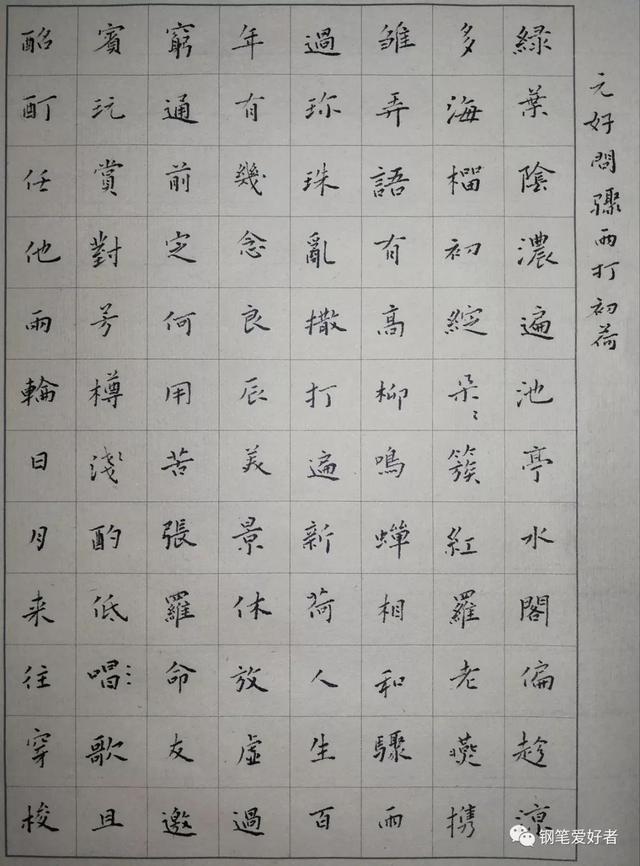 元好問驟雨打初荷
綠葉陰濃遍池亭水閣偏趁涼
多海榴初綻朵〻簇紅羅老燕携
雛弄語有高柳鳴蟬相和驟雨
過珍珠亂撒打遍新荷人生百
年有幾念良辰美景休放虛過
窮通前定何用苦張羅命友邀
賓玩賞對芳樽淺酌低唱歌且
酩酊任他兩輪日月来往穿梭
钢笔爱好者